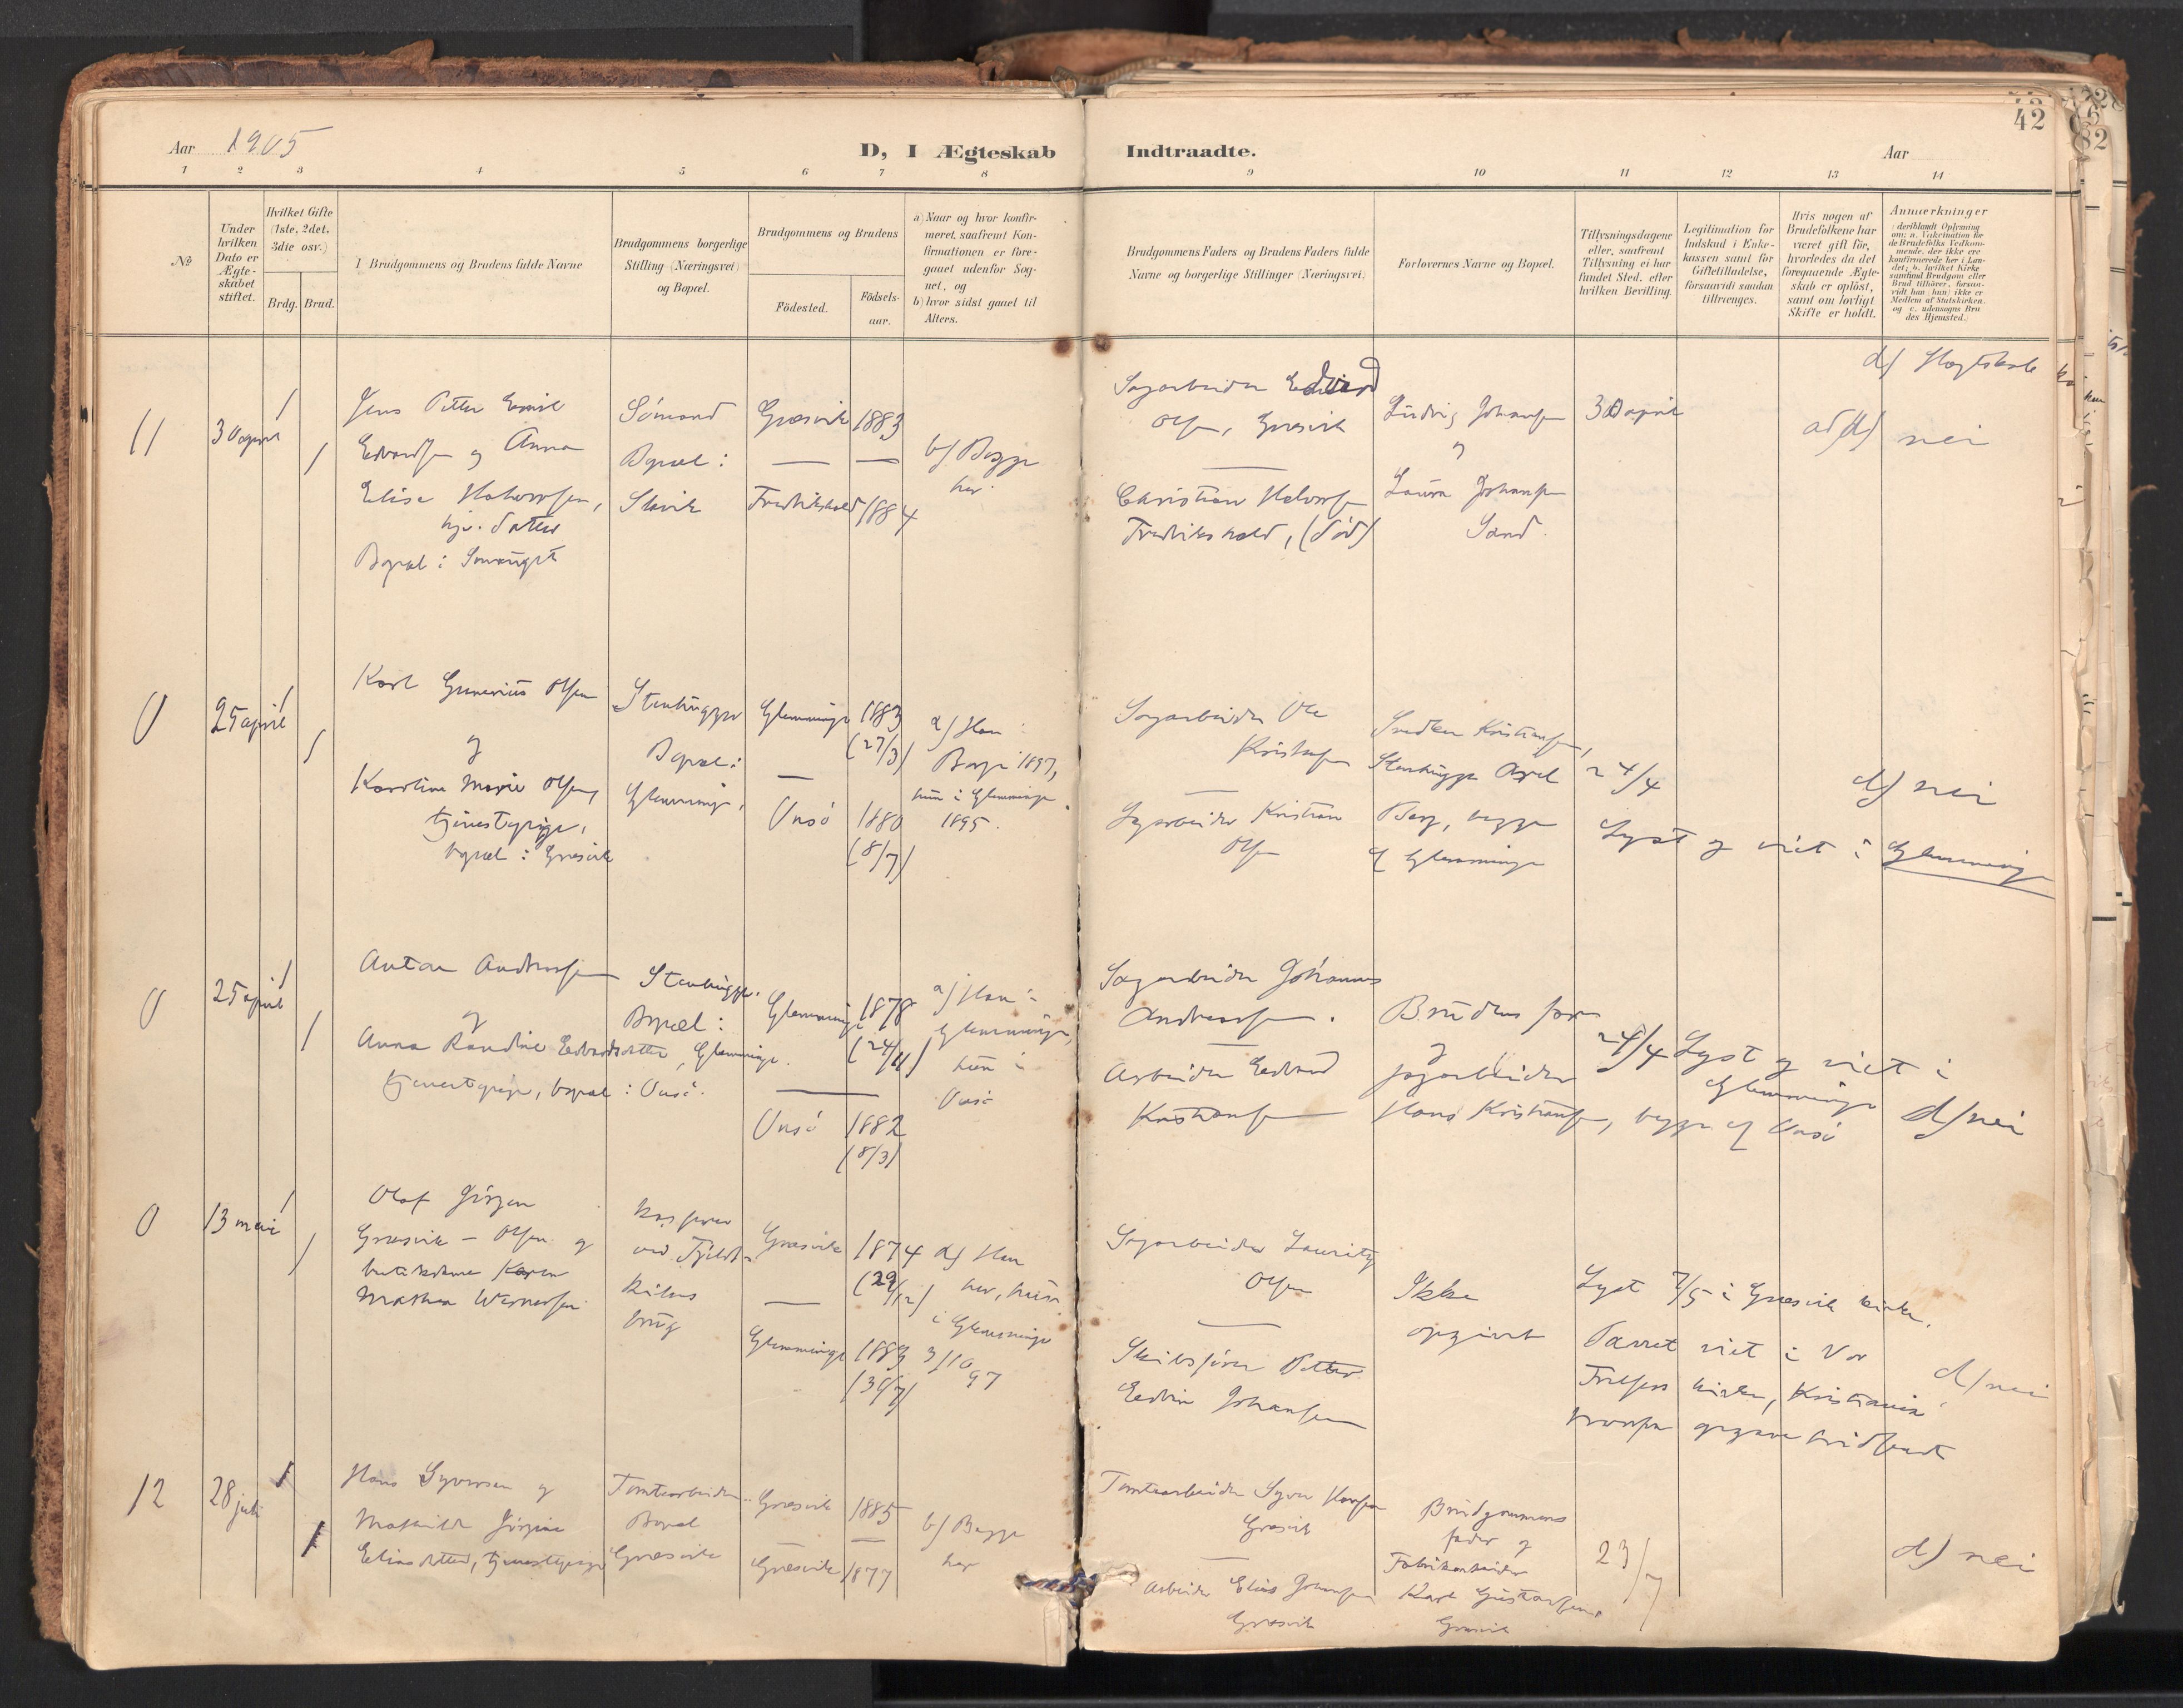 Aar 1905
D, I Ægteskab
Indtraadte.
Aar
42
1 2 3 4 5 6 7 8 9 10 11 12 13 14
№
Under hvilken Dato er Ægteskabet stiftet.
Hvilket Gifte (1ste, 2det, 3die osv.)
Brdg. Brud.
Brudgommens og Brudens fulde Navne
Brudgommens borgerlige Stilling (Næringsvei) og Bopæl.
Brudgommens og Brudens
Fødested.
Fødselsaar.
a) Naar og hvor konfirmeret, saafremt Konfirmationen er foregaaet udenfor Sognet, og
b) hvor sidst gaaet til Alters.
Brudgommens Faders og Brudens Faders fulde Navne og borgerlige Stillinger (Næringsvei).
Forlovernes Navne og Bopæl.
Tillysningsdagene eller, saafremt Tillysning ei har fundet Sted, efter hvilken Bevilling.
Legitimation for Indskud i Enkekassen samt for Giftetilladelse, forsaavidt saadan tiltrænges.
Hvis nogen af Brudefolkene har været gift før, hvorledes da det foregaaende Ægteskab er opløst, samt om lovligt Skifte er holdt.
Anmærkninger
11
30 april
1
1
Jens Petter Emil
Edvardsen og Anna
Elise Halvorsen,
hjv. datter
Bopæl:
Sømand
Bopæl:
Slevik
Græsvik 1883
Fredrikshald 1884
b) Begge
her.
Sagarbeider Edvard
Olsen, Græsvik
Christian Halvorsen
Fredrikshald, (død)
Ludvig Johansen
og
Laura Johansen
Sand.
30 april
nei
0
25 april
1
1
Karl Gunerius Olsen
og
Karoline Marie Olsen,
tjenestepige,
bopæl: Græsvik
Stenhugger
Bopæl:
Glemminge,
Glemminge 1883
(27/3)
Onsø 1880
(8/7)
a) Han i
Borge 1897,
hun i Glemminge
1895.
Sagarbeider Ole
Kristiansen
Sagarbeider Kristian
Olsen
Stenhugger Axel
Berg, begge
af Glemminge
24/4
Lyst og viet i Glemminge
d) nei
0
25 april
1
1
Anton Andreassen
og
Anna Randine Edvardsdatter,
tjenestepige, bopæl: Onsø.
Stenhugger.
Bopæl:
Glemminge.
Glemminge 1878
(24/11)
Onsø 1882
(8/3)
a) Han i
Glemminge,
hun i
Onsø
Sagarbeider Johannes
Andreassen.
Arbeider Edvard
Kristiansen
Brudens far
og
sagarbeider
Hans Kristiansen, begge af Onsø
24/4 Lyst og viet i
Glemminge
d) nei
0
13 mai
1
1
Olaf Jørgen
Græsvik - Olsen og
Karen
Mathea Wernersen
Glemminge
Græsvik 1874
(29/12)
Glemminge 1883
(30/7)
a) Han
her, hun
i Glemminge
3/10
97
Sagarbeider Lauritz
Olsen
Skibsfører Petter
Edvin Johansen
Ikke
opgivet
Lyst 7/5 i Græsvik kirke.
Parret viet i Vor
Frelsers kirke, Kristiania
d) nei
12
28 juli
1
1
Hans Syversen og
Mathilde Jørgine
Eliasdatter, tjenestepige
Tomtearbeider
Bopæl
Græsvik
Græsvik 1885
Græsvik 1877
b) Begge
her
Tomtearbeider Syver Hansen
Græsvik
Arbeider Elias Johansen
Græsvik
Brudgommens
fader og
Fabrikarbeider
Karl Gustavsen,
Græsvik
23/7
d) nei